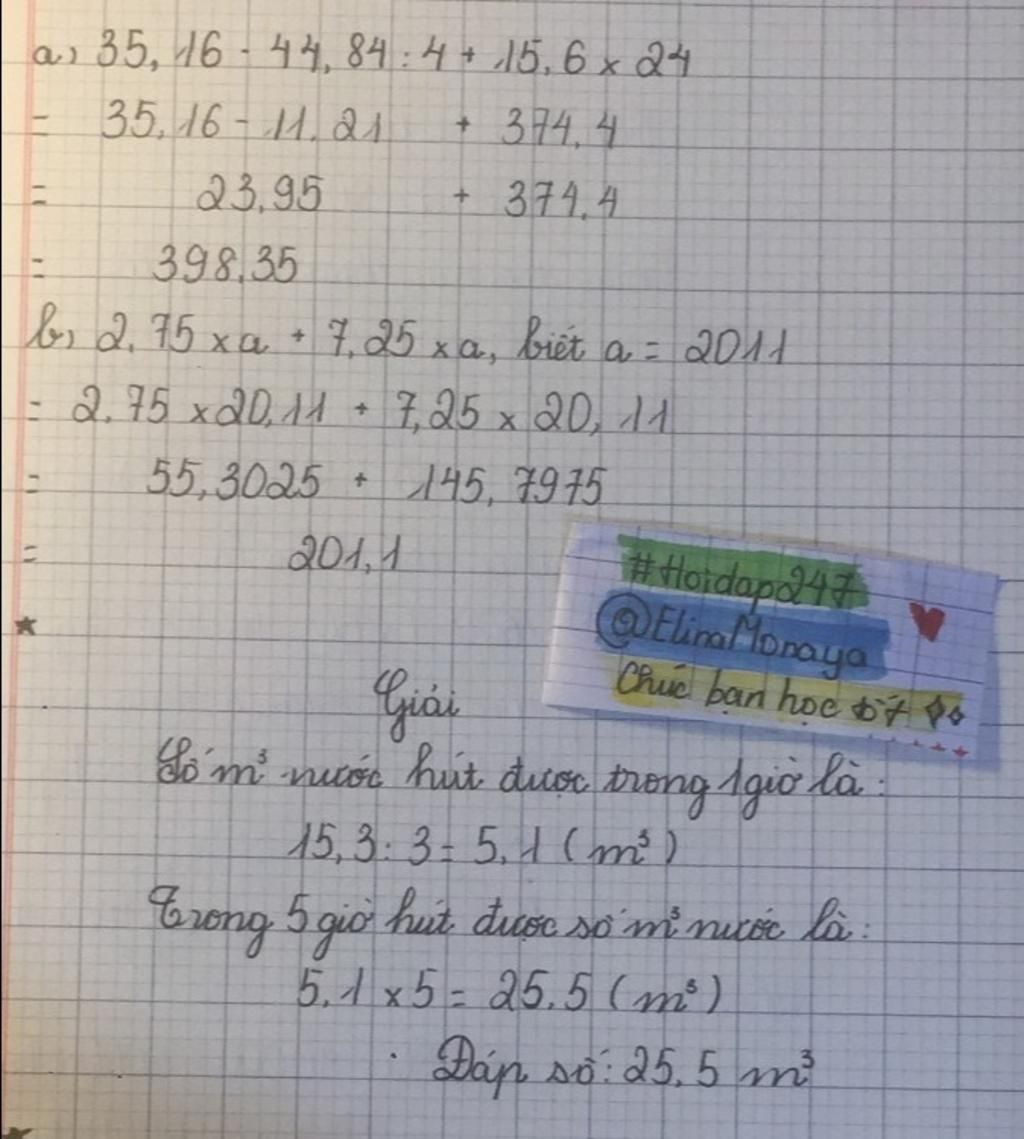 a, 35,16 - 44,84 : 4 + 15,6 x 24
= 35,16 - 11,21 + 374,4
= 23,95 + 374,4
= 398,35
b, 2,75 x a + 7,25 x a, biết a = 2011
= 2,75 x 20,11 + 7,25 x 20,11
= 55,3025 + 145,7975
= 201,1
#Hoidap247
@ElinaMonaya
Chúc bạn học tốt
Giải
Số m³ nước hút được trong 1 giờ là:
15,3 : 3 = 5,1 (m³)
Trong 5 giờ hút được số m³ nước là:
5,1 x 5 = 25,5 (m³)
Đáp số: 25,5 m³